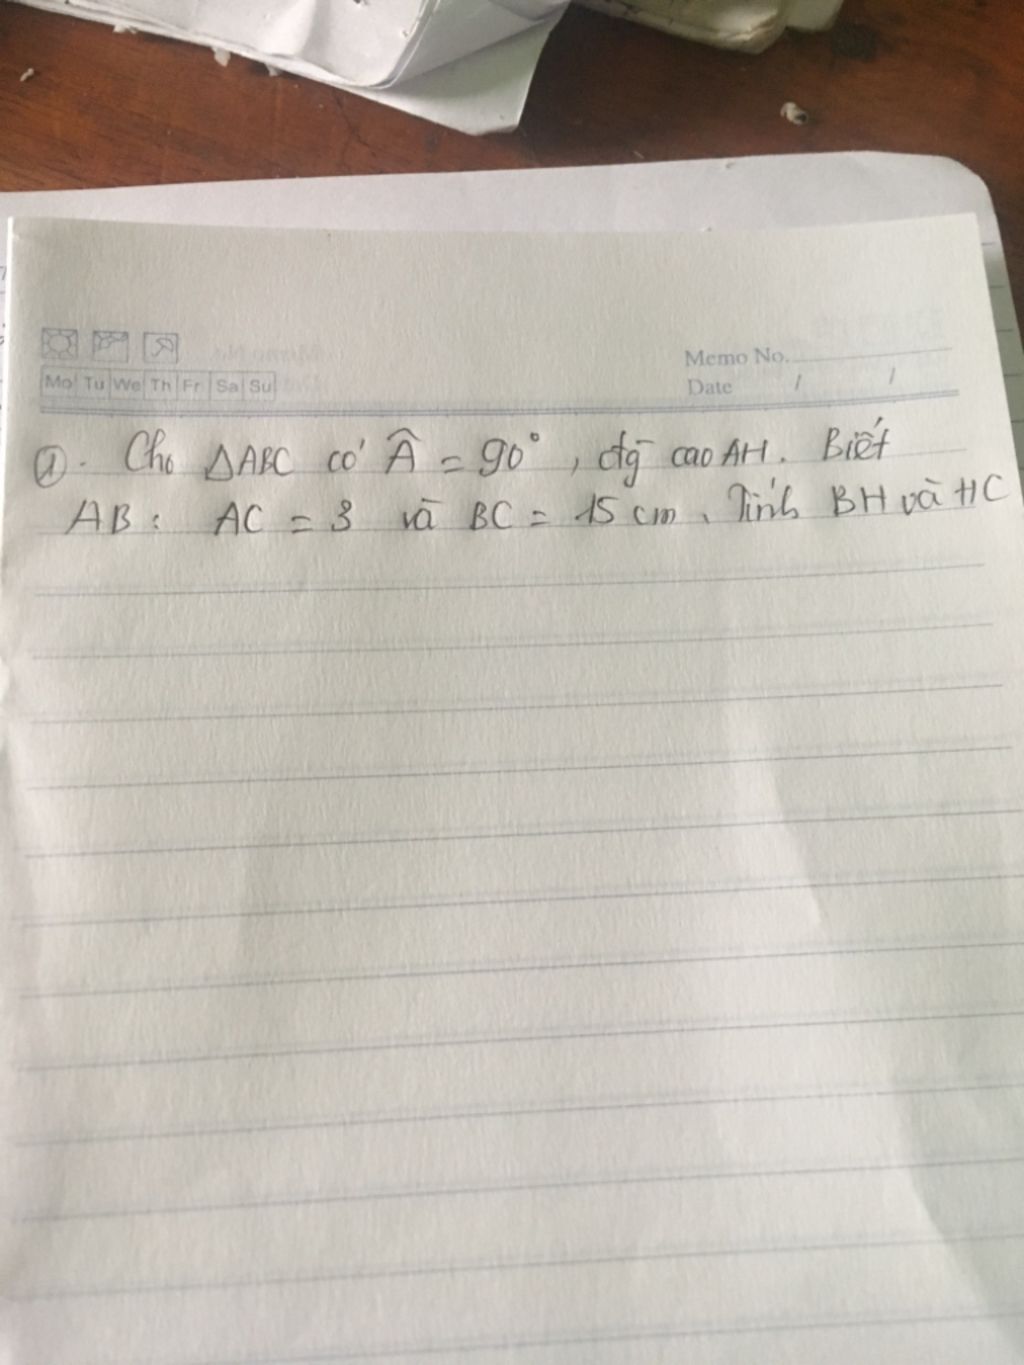 Memo No.
Mo Tu We Th Fr Sa Su
Date / /
①. Cho △ABC có Â = 90°, đg cao AH. Biết
AB : AC = 3 và BC = 15 cm. Tính BH và HC